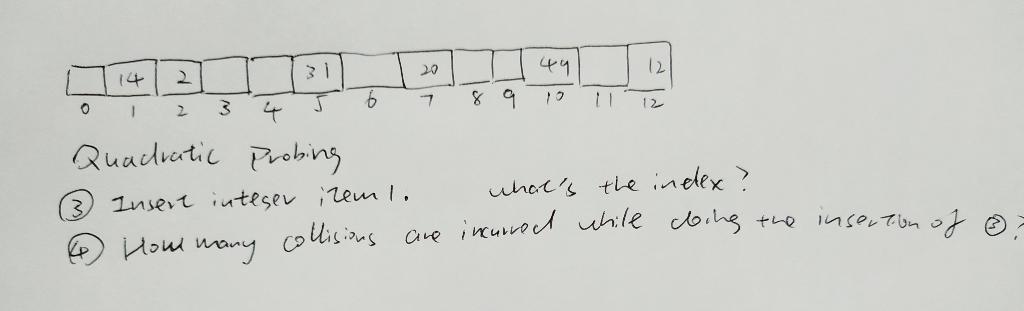 14 2 31 20 49 12
0 1 2 3 4 5 6 7 8 9 10 11 12
Quadratic Probing
③ Insert integer item 1. what's the index?
④ How many collisions are incurred while doing the insertion of ③?